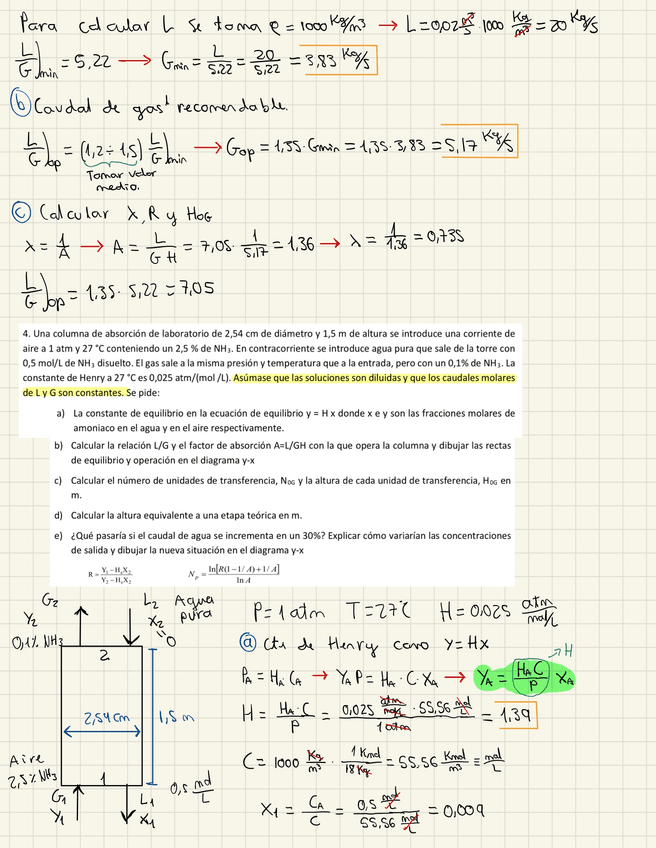 Para calcular L se toma ρ = 1000 Kg/m³ → L = 0,02 m³/s · 1000 Kg/m³ = 20 Kg/s
L/G)min = 5,22 → Gmin = L/5,22 = 20/5,22 = 3,83 Kg/s
b Caudal de gas recomendable.
L/G)op = (1,2 ÷ 1,5) L/G)min → Gop = 1,35 · Gmin = 1,35 · 3,83 = 5,17 Kg/s
Tomar valor
medio.
c Calcular λ, R y HOG
λ = 1/A → A = L/GH = 7,05 · 1/5,17 = 1,36 → λ = 1/1,36 = 0,735
L/G)op = 1,35 · 5,22 = 7,05
4. Una columna de absorción de laboratorio de 2,54 cm de diámetro y 1,5 m de altura se introduce una corriente de
aire a 1 atm y 27 °C conteniendo un 2,5 % de NH₃. En contracorriente se introduce agua pura que sale de la torre con
0,5 mol/L de NH₃ disuelto. El gas sale a la misma presión y temperatura que a la entrada, pero con un 0,1% de NH₃. La
constante de Henry a 27 °C es 0,025 atm/(mol /L). Asúmase que las soluciones son diluidas y que los caudales molares
de L y G son constantes. Se pide:
a) La constante de equilibrio en la ecuación de equilibrio y = H x donde x e y son las fracciones molares de
amoniaco en el agua y en el aire respectivamente.
b) Calcular la relación L/G y el factor de absorción A=L/GH con la que opera la columna y dibujar las rectas
de equilibrio y operación en el diagrama y-x
c) Calcular el número de unidades de transferencia, NOG y la altura de cada unidad de transferencia, HOG en
m.
d) Calcular la altura equivalente a una etapa teórica en m.
e) ¿Qué pasaría si el caudal de agua se incrementa en un 30%? Explicar cómo variarían las concentraciones
de salida y dibujar la nueva situación en el diagrama y-x
R = (Y₁ − HₐX₂)/(Y₂ − HₐX₂) Np = ln[R(1−1/A)+1/A]/ln A
G2 L2 Agua
Y2 X2 pura
0,1% NH3 "0
2
2,54 cm 1,5 m
Aire
2,5% NH3 1 0,5 mol/L
G1 L1
Y1 X1
P = 1 atm T = 27°C H = 0.025 atm/mol/L
a Cte de Henry como y = Hx
PA = HA CA → YA P = HA · C · XA → YA = HA C/P XA → H
H = HA · C/P = 0,025 atm/mol/L · 55,56 mol/L / 1 atm = 1,39
C = 1000 Kg/m³ · 1 Kmol/18 Kg = 55,56 Kmol/m³ ≡ mol/L
X1 = CA/C = 0,5 mol/L / 55,56 mol/L = 0,009